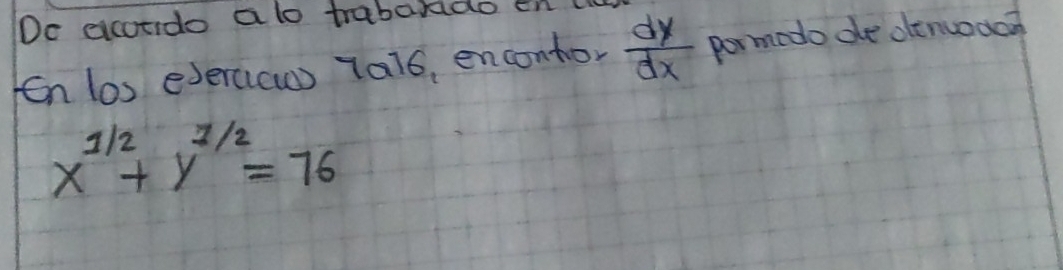 De acuerdo a lo trabajado en
En los ejercicios 1 a 16, encontrar dy/dx por medio de derivación
x^1/2 + y^1/2 = 16